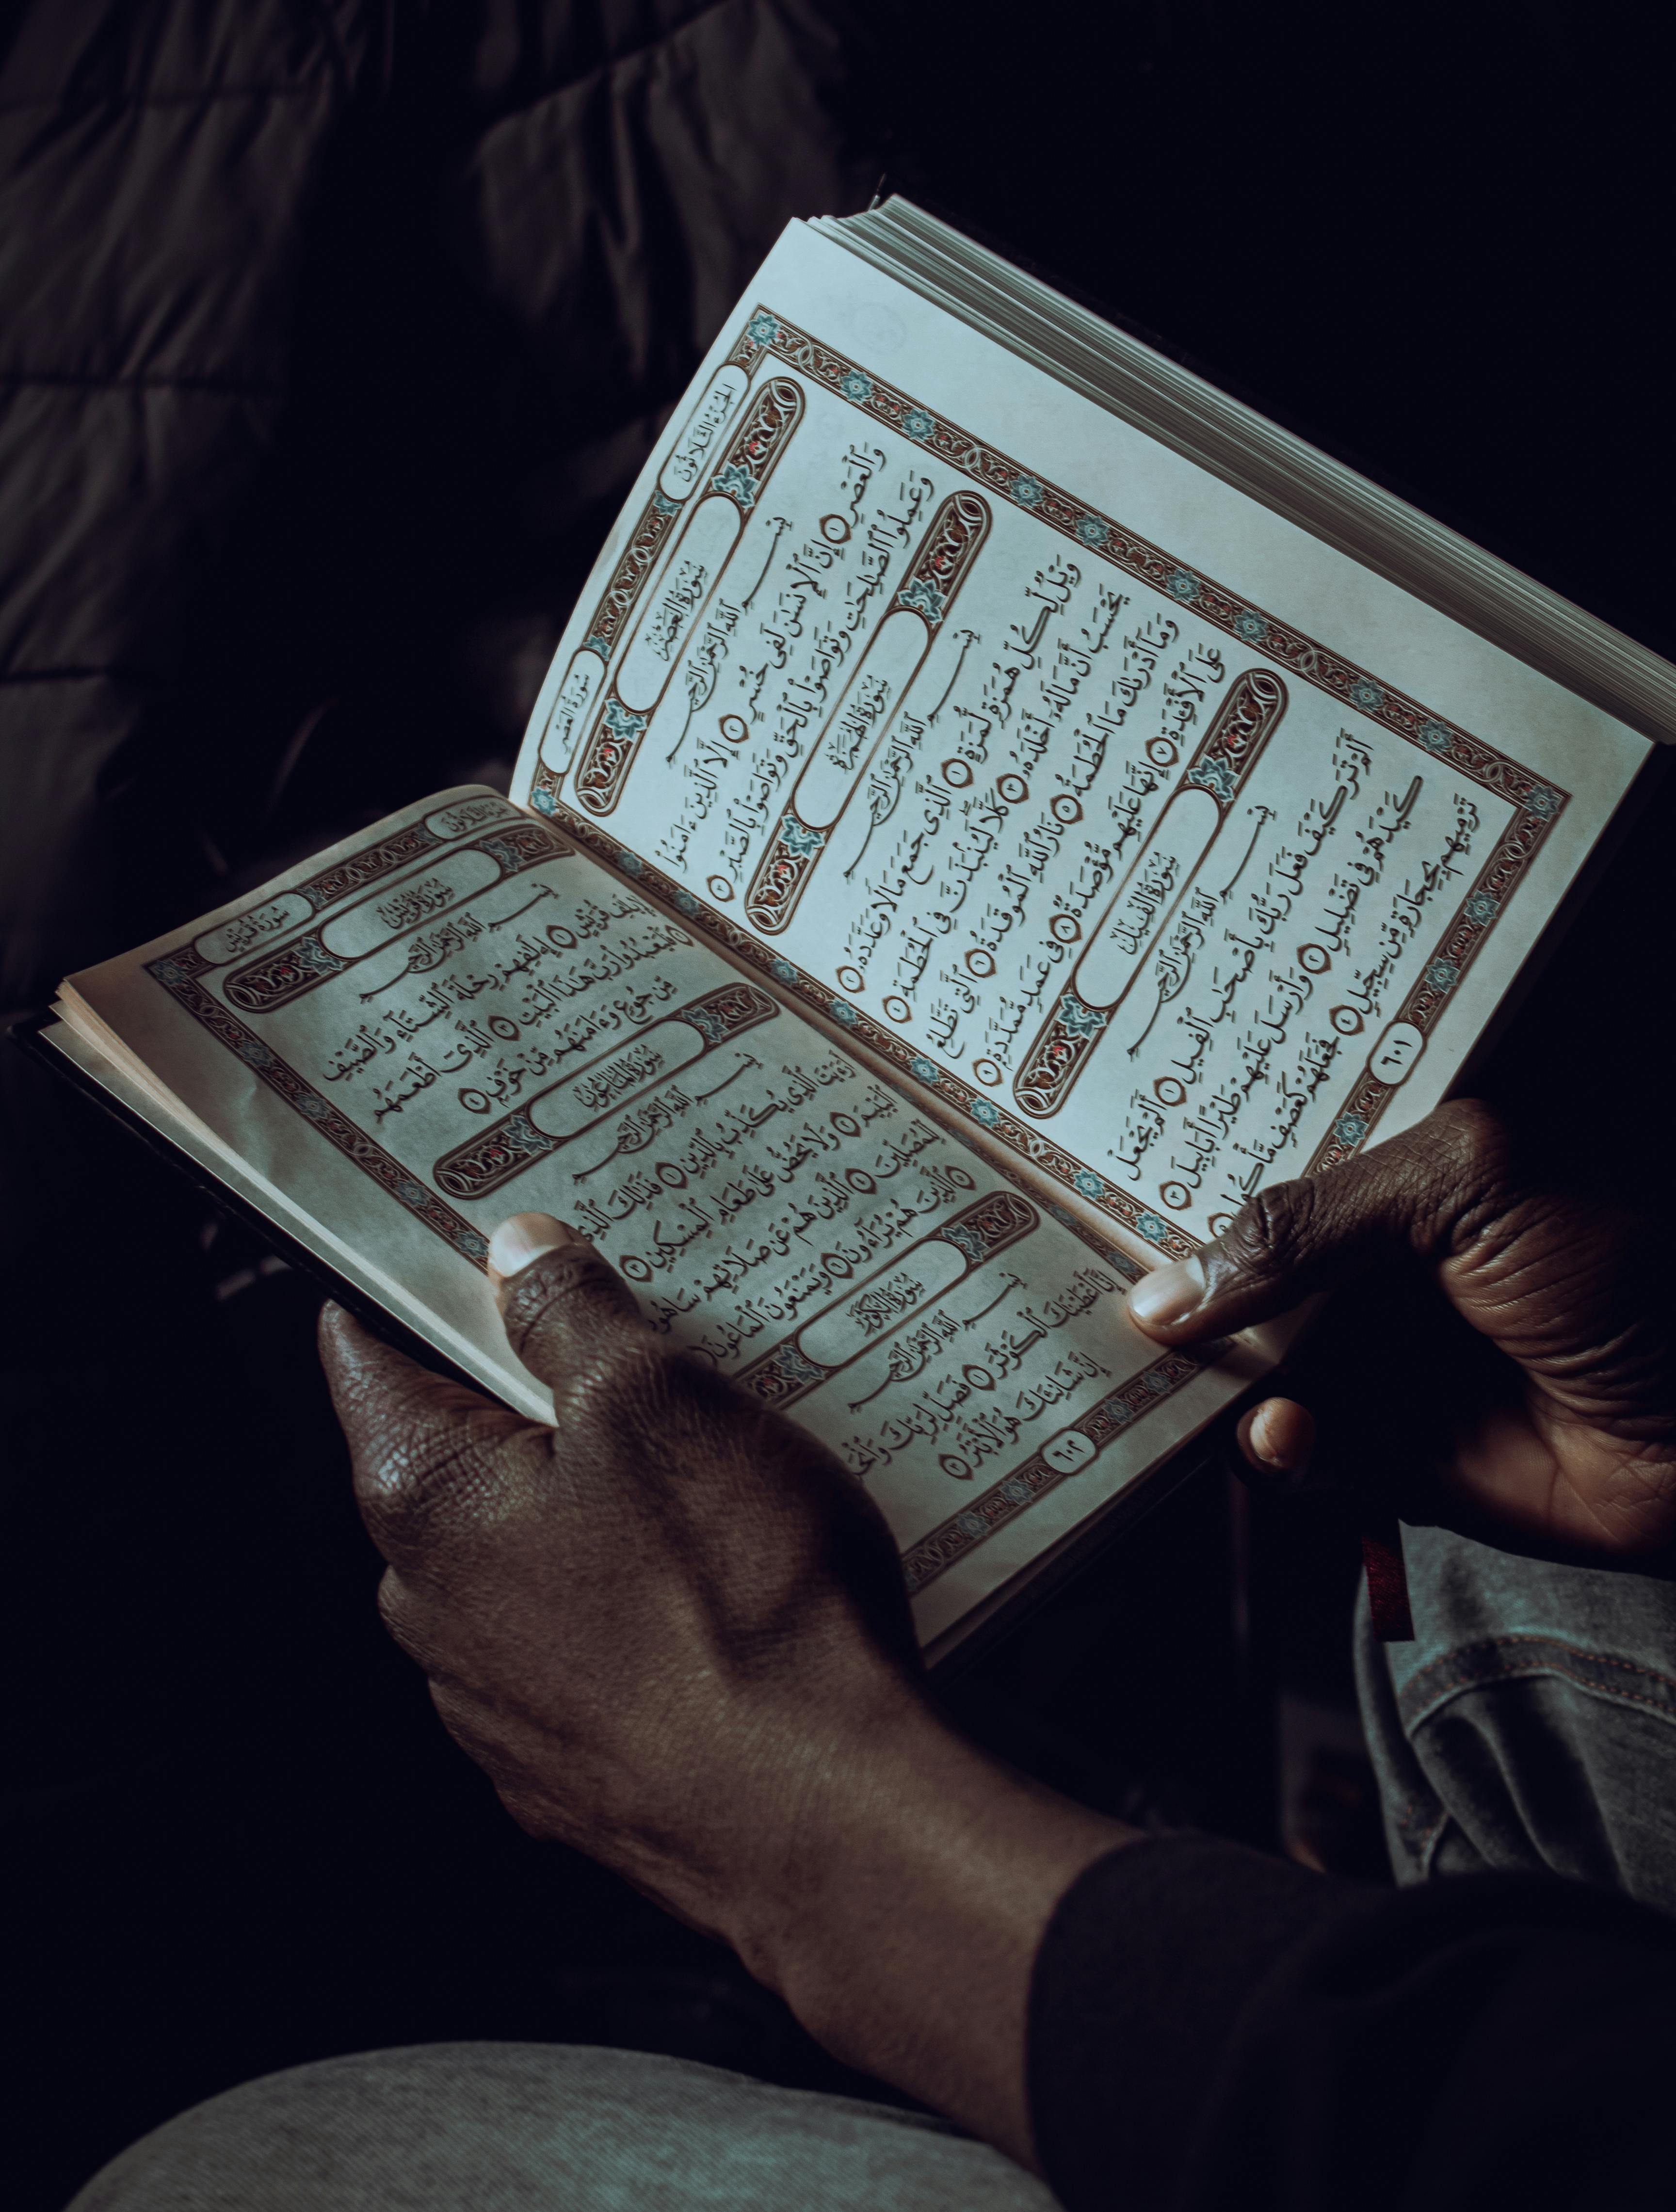 سُورَةُ العَصْرِ
الجُزْءُ الثَّلَاثُونَ
سُورَةُ العَصْرِ
بِسْمِ ٱللَّهِ ٱلرَّحْمَٰنِ ٱلرَّحِيمِ
وَٱلْعَصْرِ ١ إِنَّ ٱلْإِنسَٰنَ لَفِى خُسْرٍ ٢ إِلَّا ٱلَّذِينَ ءَامَنُوا۟
وَعَمِلُوا۟ ٱلصَّٰلِحَٰتِ وَتَوَاصَوْا۟ بِٱلْحَقِّ وَتَوَاصَوْا۟ بِٱلصَّبْرِ ٣
سُورَةُ الهُمَزَةِ
بِسْمِ ٱللَّهِ ٱلرَّحْمَٰنِ ٱلرَّحِيمِ
وَيْلٌ لِّكُلِّ هُمَزَةٍ لُّمَزَةٍ ١ ٱلَّذِى جَمَعَ مَالًا وَعَدَّدَهُۥ ٢
يَحْسَبُ أَنَّ مَالَهُۥٓ أَخْلَدَهُۥ ٣ كَلَّا لَيُنۢبَذَنَّ فِى ٱلْحُطَمَةِ ٤
وَمَآ أَدْرَىٰكَ مَا ٱلْحُطَمَةُ ٥ نَارُ ٱللَّهِ ٱلْمُوقَدَةُ ٦ ٱلَّتِى تَطَّلِعُ
عَلَى ٱلْأَفْـِٔدَةِ ٧ إِنَّهَا عَلَيْهِم مُّؤْصَدَةٌ ٨ فِى عَمَدٍ مُّمَدَّدَةٍۭ ٩
سُورَةُ الفِيلِ
بِسْمِ ٱللَّهِ ٱلرَّحْمَٰنِ ٱلرَّحِيمِ
أَلَمْ تَرَ كَيْفَ فَعَلَ رَبُّكَ بِأَصْحَٰبِ ٱلْفِيلِ ١ أَلَمْ يَجْعَلْ
كَيْدَهُمْ فِى تَضْلِيلٍ ٢ وَأَرْسَلَ عَلَيْهِمْ طَيْرًا أَبَابِيلَ ٣
تَرْمِيهِم بِحِجَارَةٍ مِّن سِجِّيلٍ ٤ فَجَعَلَهُمْ كَعَصْفٍ مَّأْكُولٍۭ
٦٠١
سُورَةُ قُرَيْشٍ
الجُزْءُ الثَّلَاثُونَ
سُورَةُ قُرَيْشٍ
بِسْمِ ٱللَّهِ ٱلرَّحْمَٰنِ ٱلرَّحِيمِ
لِإِيلَٰفِ قُرَيْشٍ ١ إِۦلَٰفِهِمْ رِحْلَةَ ٱلشِّتَآءِ وَٱلصَّيْفِ
٢ فَلْيَعْبُدُوا۟ رَبَّ هَٰذَا ٱلْبَيْتِ ٣ ٱلَّذِىٓ أَطْعَمَهُم
مِّن جُوعٍ وَءَامَنَهُم مِّنْ خَوْفٍۭ ٤
سُورَةُ المَاعُونِ
بِسْمِ ٱللَّهِ ٱلرَّحْمَٰنِ ٱلرَّحِيمِ
أَرَءَيْتَ ٱلَّذِى يُكَذِّبُ بِٱلدِّينِ ١ فَذَٰلِكَ ٱلَّذِى
ٱلْيَتِيمَ ٢ وَلَا يَحُضُّ عَلَىٰ طَعَامِ ٱلْمِسْكِينِ ٣
لِّلْمُصَلِّينَ ٤ ٱلَّذِينَ هُمْ عَن صَلَاتِهِمْ سَاهُونَ
٥ ٱلَّذِينَ هُمْ يُرَآءُونَ ٦ وَيَمْنَعُونَ ٱلْمَاعُونَ
سُورَةُ الكَوْثَرِ
بِسْمِ ٱللَّهِ ٱلرَّحْمَٰنِ ٱلرَّحِيمِ
إِنَّآ أَعْطَيْنَٰكَ ٱلْكَوْثَرَ ١ فَصَلِّ لِرَبِّكَ وَٱنْحَرْ
إِنَّ شَانِئَكَ هُوَ ٱلْأَبْتَرُ ٣
٦٠٢